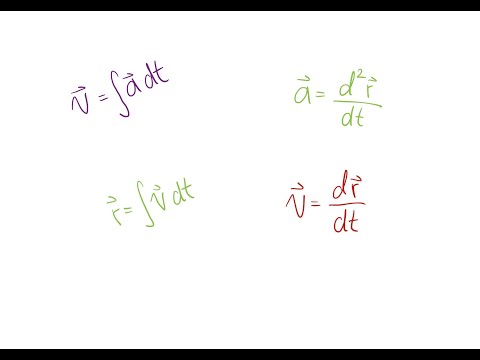 $\vec{v} = \int \vec{a}\, dt$
$\vec{a} = \frac{d^2 \vec{r}}{dt}$
$\vec{r} = \int \vec{v}\, dt$
$\vec{v} = \frac{d\vec{r}}{dt}$